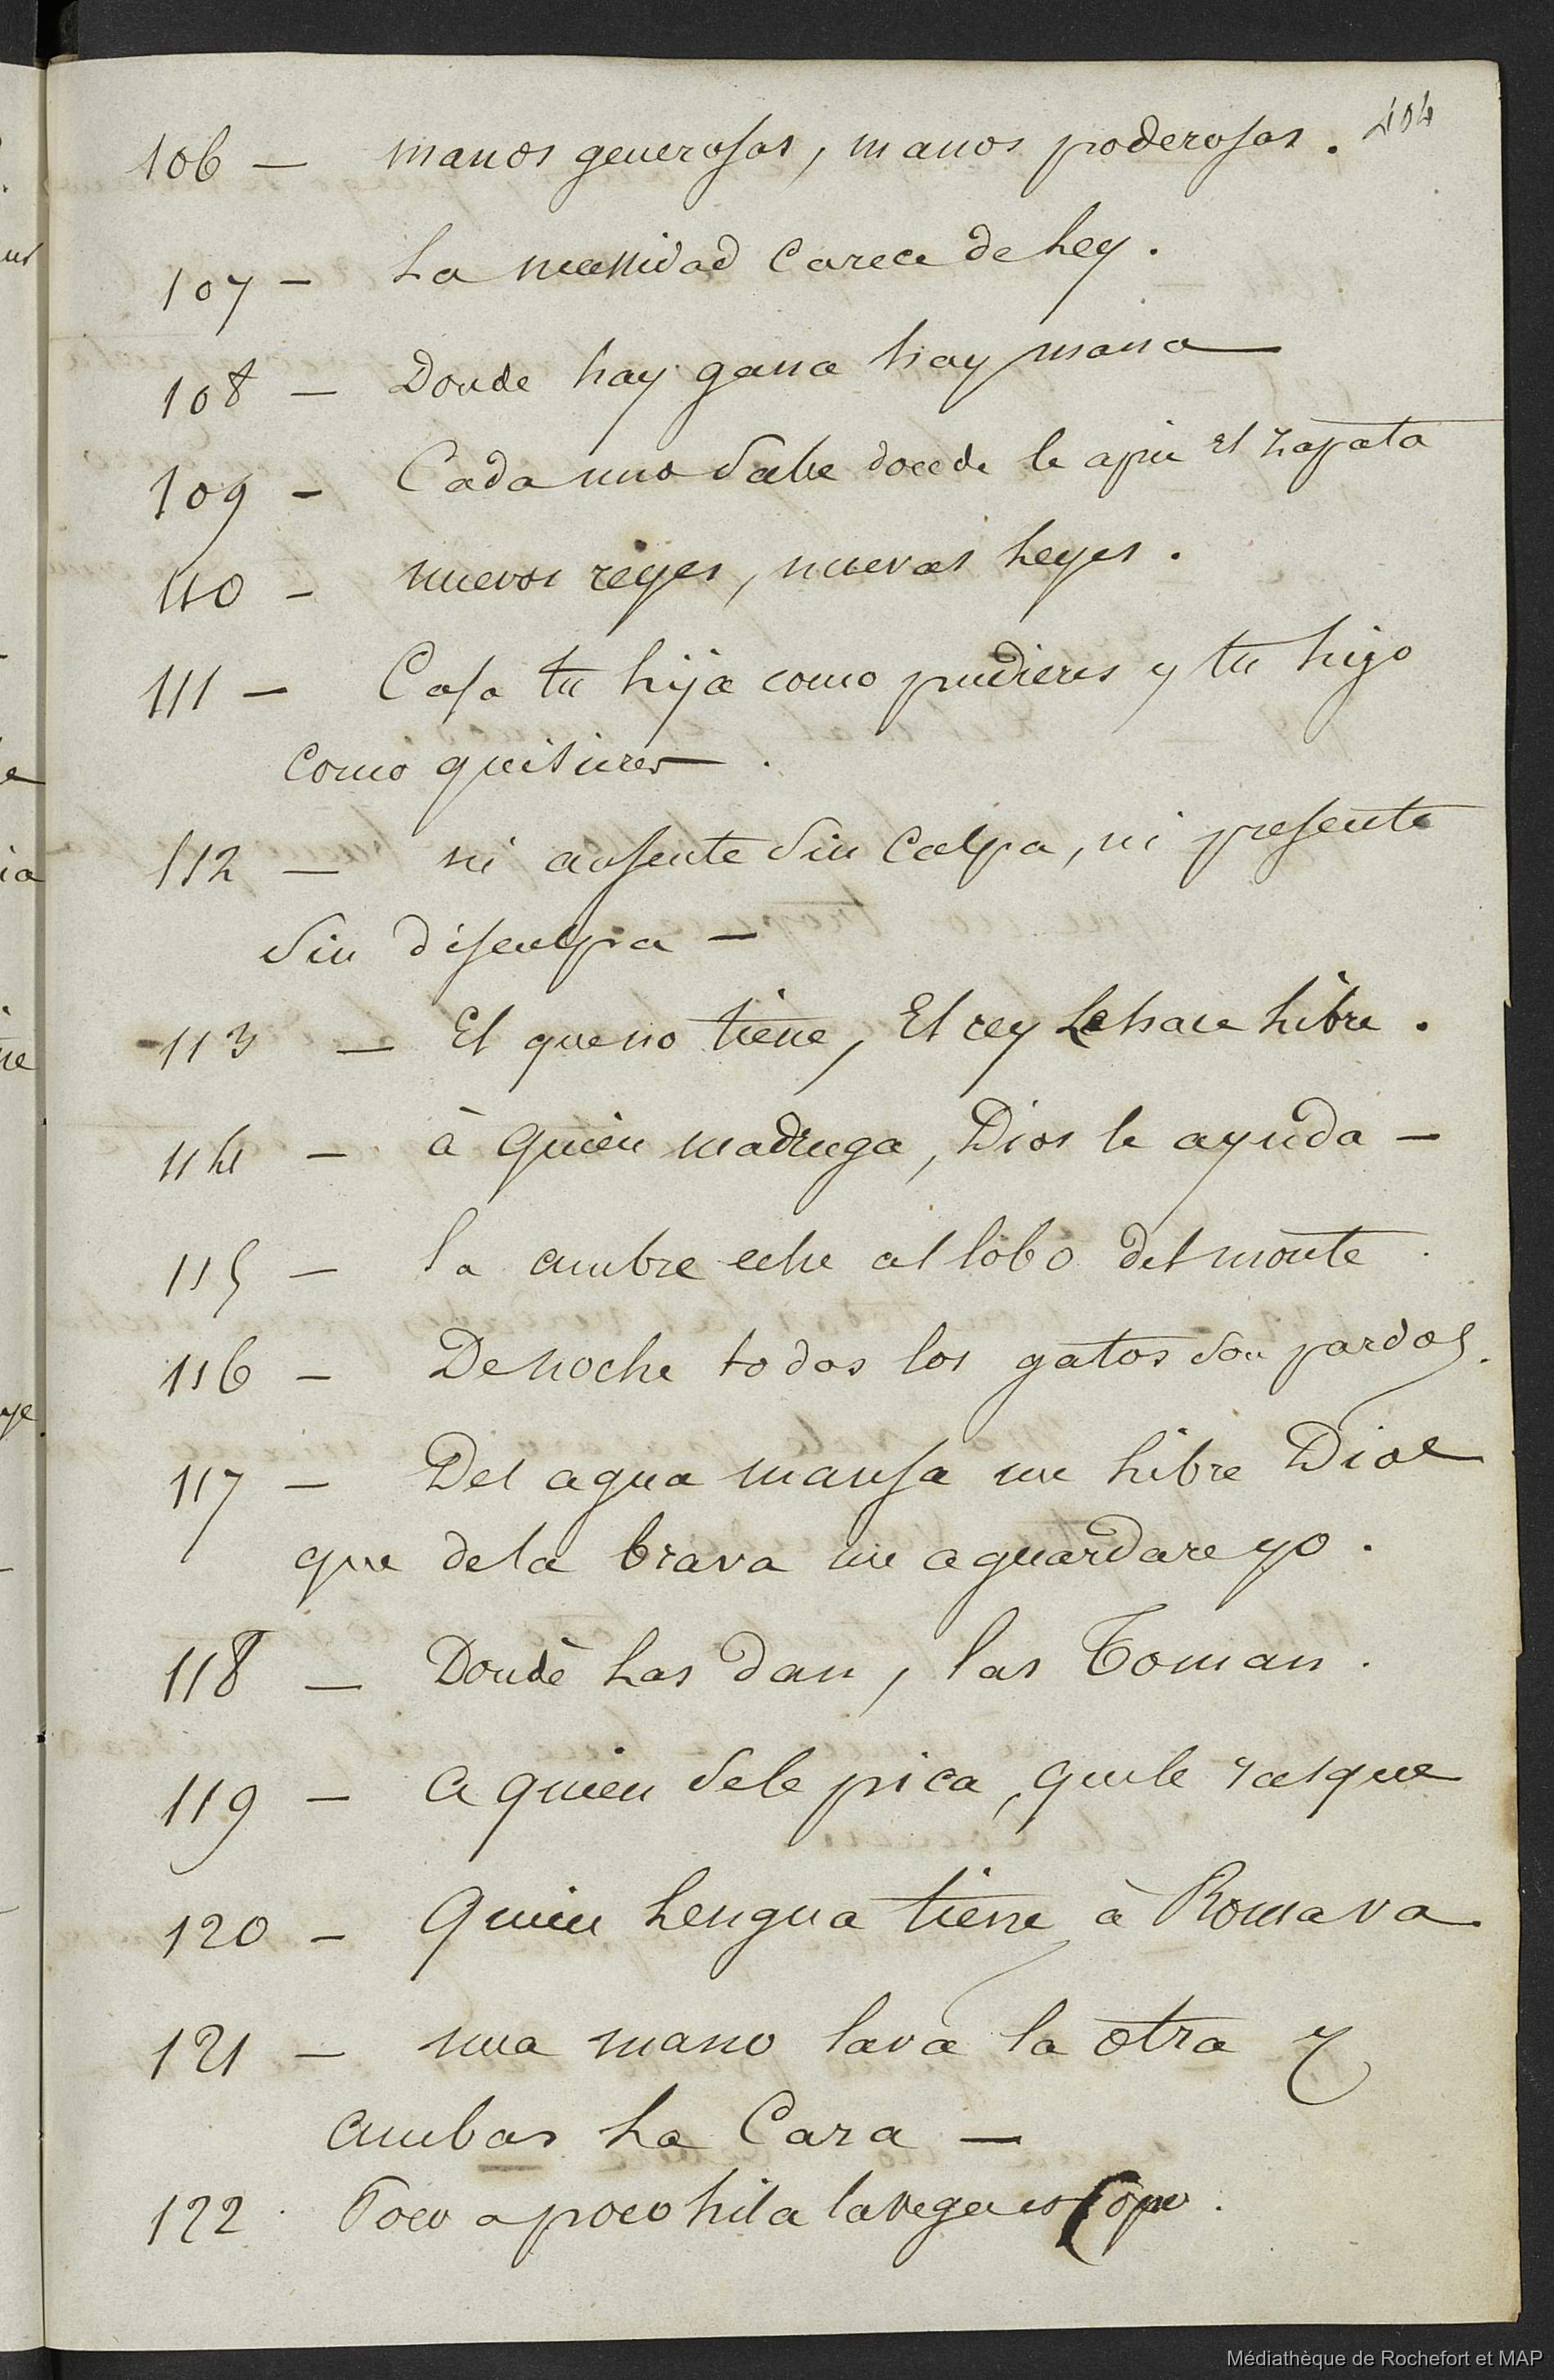 404
106 — manos generosas, manos poderosas.
107 — La necessidad Carece de Ley.
108 — Donde hay gana hay mana
109 — Cada uno Sabe donde le apie el zapata
110 — nuevos reyes, nuevas Leyes.
111 — Casa tu hija como pudieres y tu hijo
como quisieres.
112 — ni ausente Sin Culpa, ni presente
Sin disculpa —
113 — El que no tiene, El rey Le hace Libre.
114 — à quien madruga, Dios le ayuda —
115 — la ambre eche al lobo del monte.
116 — De noche todos los gatos Son pardos.
117 — Del agua mansa me Libre Dios
que de la brava me aguardare yo.
118 — Dondè Las dan, las Toman.
119 — a quien Se le pica, que le rasque
120 — Quien Lengua tiene à Roma va.
121 — una mano lava la otra y
ambas La Cara —
122. Poco a poco hila la vega es Copo.
Médiathèque de Rochefort et MAP